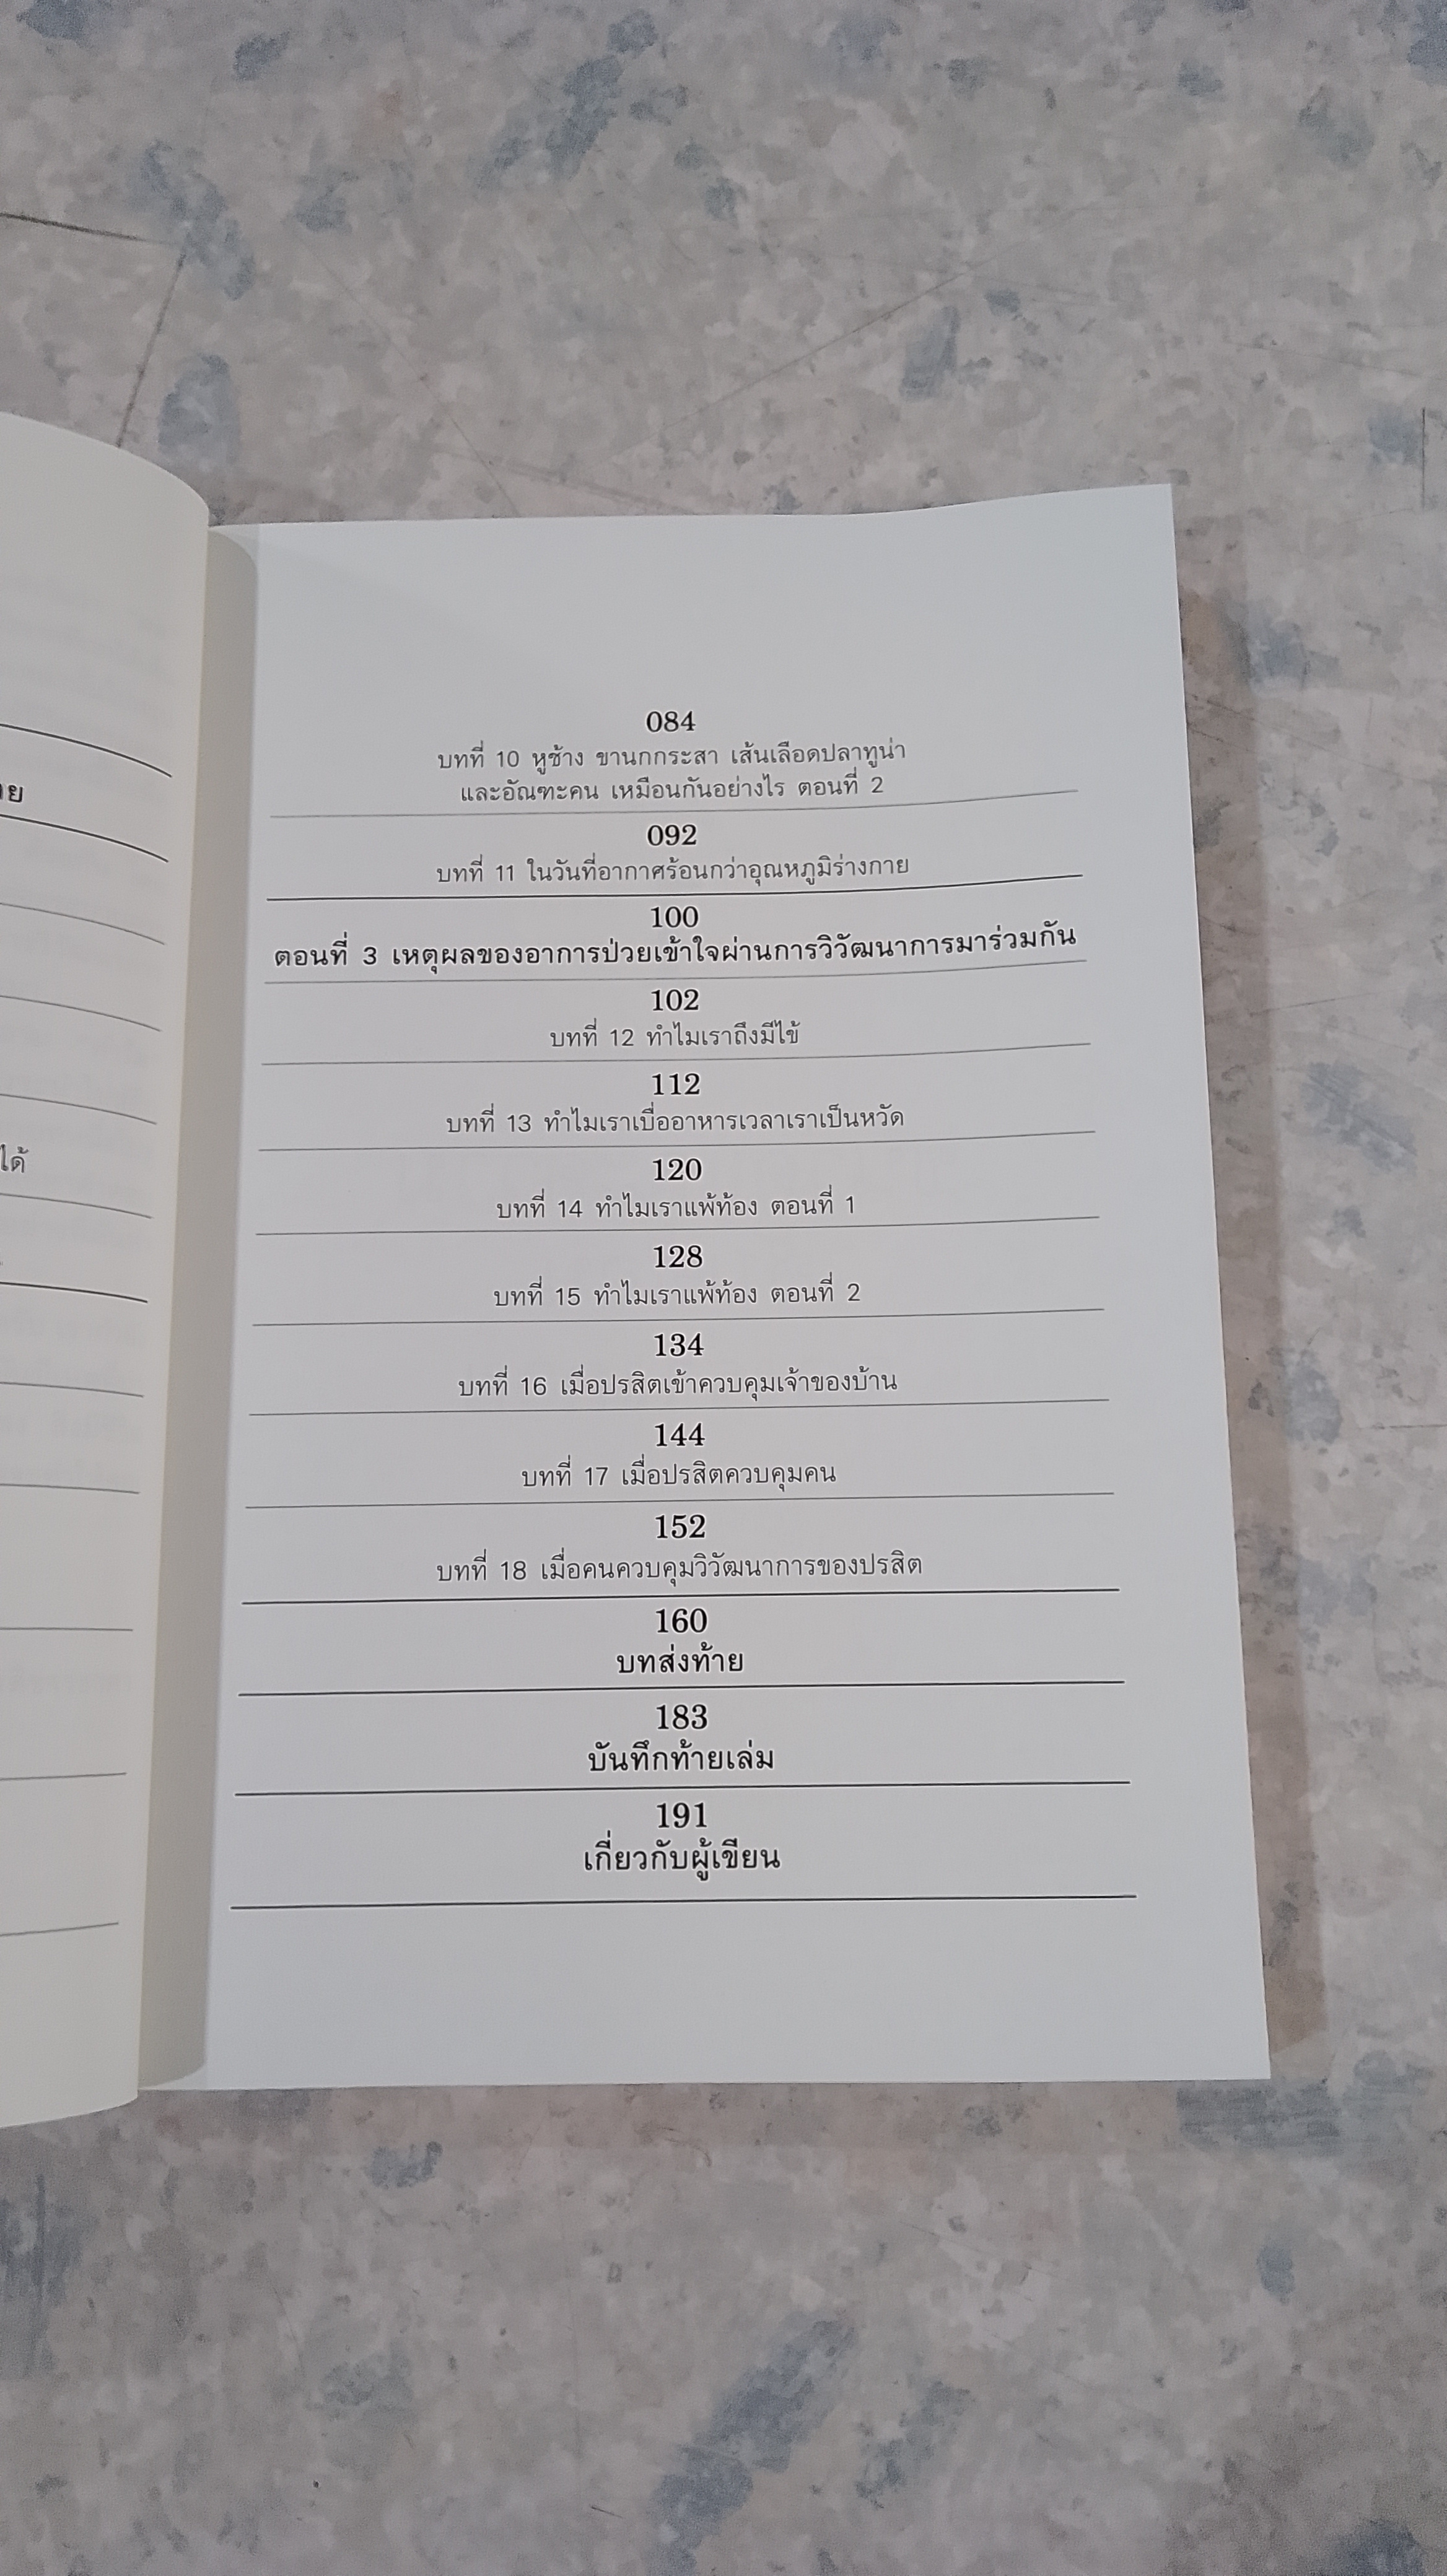 ย
ได้
084
บทที่ 10 หูช้าง ขานกกระสา เส้นเลือดปลาทูน่า
และอัณฑะคน เหมือนกันอย่างไร ตอนที่ 2
092
บทที่ 11 ในวันที่อากาศร้อนกว่าอุณหภูมิร่างกาย
100
ตอนที่ 3 เหตุผลของอาการป่วยเข้าใจผ่านการวิวัฒนาการมาร่วมกัน
102
บทที่ 12 ทำไมเราถึงมีไข้
112
บทที่ 13 ทำไมเราเบื่ออาหารเวลาเราเป็นหวัด
120
บทที่ 14 ทำไมเราแพ้ท้อง ตอนที่ 1
128
บทที่ 15 ทำไมเราแพ้ท้อง ตอนที่ 2
134
บทที่ 16 เมื่อปรสิตเข้าควบคุมเจ้าของบ้าน
144
บทที่ 17 เมื่อปรสิตควบคุมคน
152
บทที่ 18 เมื่อคนควบคุมวิวัฒนาการของปรสิต
160
บทส่งท้าย
183
บันทึกท้ายเล่ม
191
เกี่ยวกับผู้เขียน